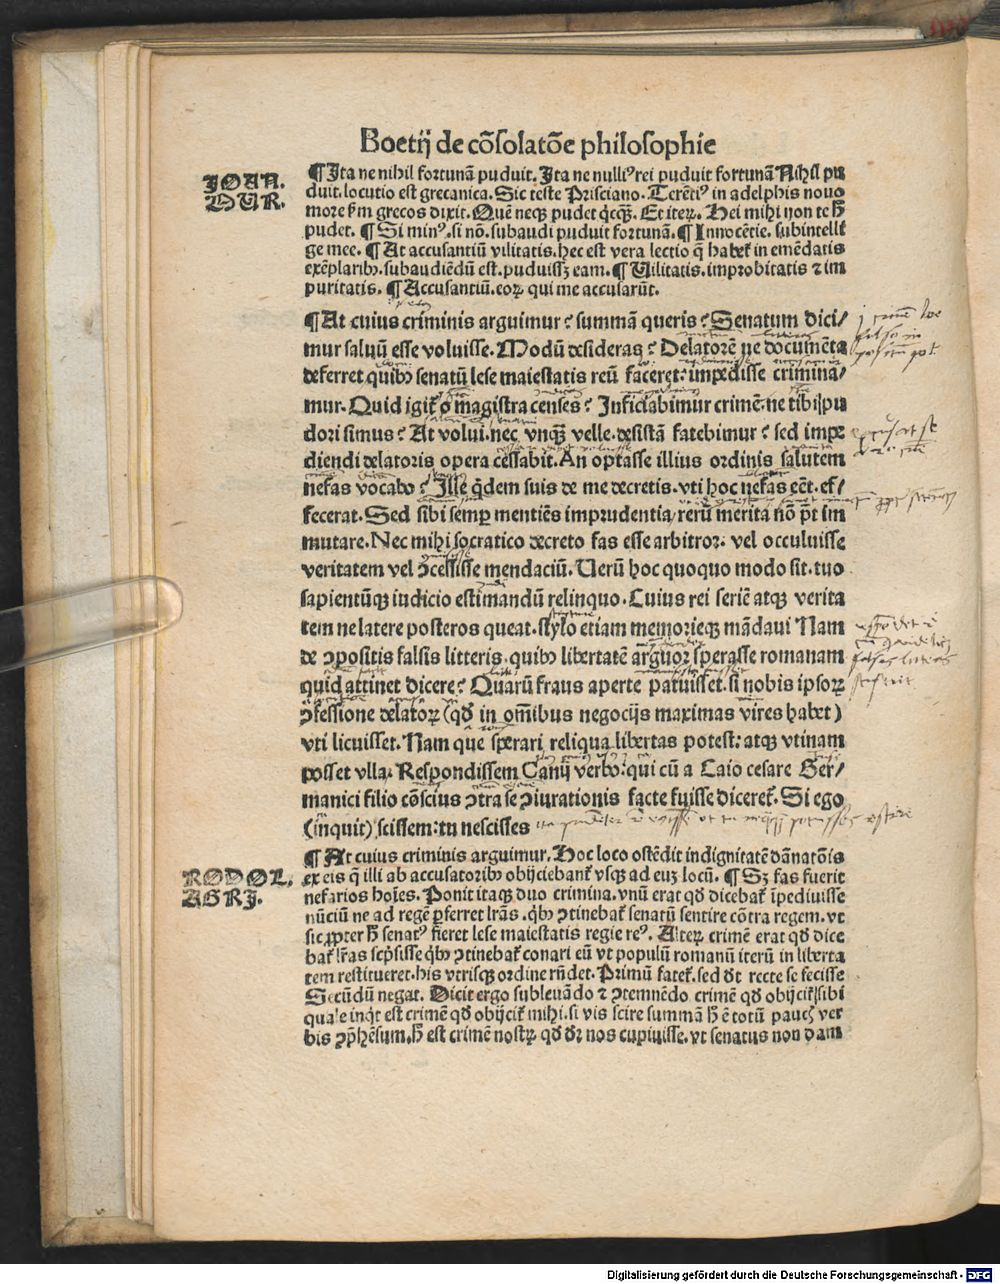 Boetij de cōsolatōe philosophie
IOAN.
MUR.
¶ Ita ne nihil fortunā puduit. Ita ne nulliꝰ rei puduit fortunā Nihil pu
duit. locutio est grecanica. Sic teste Prisciano. Terētiꝰ in adelphis nouo
more ẜm grecos dixit. Quē neqꝫ pudet q̇cqꝫ. Et iteꝝ. Hei mihi non te h̄
pudet. ¶ Si minꝰ. si nō. subaudi puduit fortunā. ¶ Innocētie. subintelli
ge mee. ¶ At accusantiū vilitatis. hec est vera lectio q̄ habet̄ in emēdatis
exēplaribꝰ. subaudiēdū est. puduissꝫ eam. ¶ Vilitatis. improbitatis ⁊ im
puritatis. ¶ Accusantiū. eoꝝ qui me accusarūt.
¶ At cuius criminis arguimur? summā queris? Senatum dici/
mur saluū esse voluisse. Modū desideras? Delatorē ne documēta
deferret quibꝰ senatū lese maiestatis reū faceret: impedisse crimina/
mur. Quid igit̄ o magistra censes? Inficiabimur crimē: ne tibi pu
dori simus? At volui. nec vnqꝫ velle. desistā fatebimur? sed impe
diendi delatoris opera cessabit. An optasse illius ordinis salutem
nefas vocabo? Ille q̇dem suis de me decretis. vti hoc nefas eēt. ef/
fecerat. Sed sibi semꝑ mentiēs imprudentia, rerū merita nō pt̄ im
mutare. Nec mihi socratico decreto fas esse arbitror: vel occuluisse
veritatem vel ꝯcessisse mendaciū. Verū hoc quoquo modo sit. tuo
sapientūqꝫ iudicio estimandū relinquo. Cuius rei seriē atqꝫ verita
tem ne latere posteros queat. stylo etiam memorieqꝫ mādaui Nam
de ꝯpositis falsis litteris. quibꝰ libertatē arguor sperasse romanam
quid attinet dicere? Quarū fraus aperte patuisset. si nobis ipsoꝝ
ꝯfessione delatoꝝ (qd̄ in om̄ibus negocijs maximas vires habet)
vti licuisset. Nam que sperari reliqua libertas potest: atqꝫ vtinam
posset vlla. Respondissem Canij verbo: qui cū a Caio cesare Ger/
manici filio cōscius ꝯtra se ꝯiurationis facte fuisse diceret̄. Si ego
(inquit) scissem: tu nescisses
RODOL.
AGRI.
¶ At cuius criminis arguimur. Hoc loco ostēdit indignitatē dānatōis
ex eis q̄ illi ab accusatoribꝰ obijciebant̄ vsqꝫ ad euꝫ locū. ¶ Sꝫ fas fuerit
nefarios hoīes. Ponit itaqꝫ duo crimina. vnū erat qd̄ dicebat̄ īpediuisse
nūciū ne ad regē ꝑferret lr̄as. q̇bꝰ ꝯtinebat̄ senatū sentire cōtra regem. vt
sic ꝓpter h̄ senatꝰ fieret lese maiestatis regie reꝰ. Alteꝝ crimē erat qd̄ dice
bat̄ lr̄as scp̄sisse q̇bꝰ ꝯtinebat̄ conari eū vt populū romanū iterū in liberta
tem restitueret. his vtrisqꝫ ordine rn̄det. Primū fatet̄. sed dt̄ recte se fecisse
Secūdū negat. Dicit ergo subleuādo ⁊ ꝯtemnēdo crimē qd̄ obijcit̄ sibi
quale inq̇t est crimē qd̄ obijcit̄ mihi. si vis scire summā h̄ ē totū paucꝭ ver
bis ꝯp̄hēsum. h̄ est crimē nostꝝ qd̄ dr̄ nos cupiuisse. vt senatus non dam
Digitalisierung gefördert durch die Deutsche Forschungsgemeinschaft - DFG